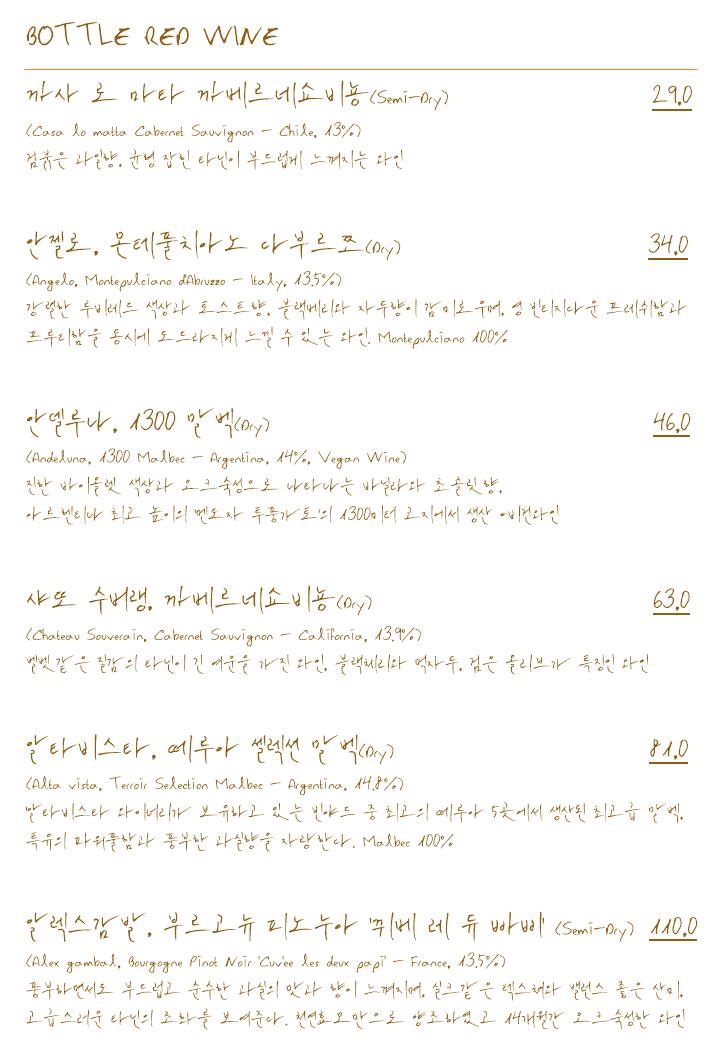 BOTTLE RED WINE
까사 로 마타 까베르네쇼비뇽(Semi-Dry) 29.0
(Casa lo matta Cabernet Sauvignon - Chile, 13%)
검붉은 과일향, 균형 잡힌 타닌이 부드럽게 느껴지는 와인
안젤로, 몬테풀치아노 다부르쪼(Dry) 34.0
(Angelo, Montepulciano d'Abruzzo - Italy, 13.5%)
강렬한 루비레드 색상과 토스트향, 블랙베리와 자두향이 감미로우며, 영 빈티지다운 프레쉬함과
프루티함을 동시에 도드라지게 느낄 수 있는 와인. Montepulciano 100%
안델루나, 1300 말벡(Dry) 46.0
(Andeluna, 1300 Malbec - Argentina, 14%, Vegan Wine)
진한 바이올렛 색상과 오크숙성으로 나타나는 바닐라와 초콜릿향,
아르헨티나 최고 높이의 멘도자 투풍가토의 1300미터 고지에서 생산 -비건와인
샤또 수버랭, 까베르네쇼비뇽(Dry) 63.0
(Chateau Souverain, Cabernet Sauvignon - California, 13.9%)
벨벳같은 질감의 타닌이 긴 여운을 가진 와인, 블랙체리와 먹자두, 검은 올리브가 특징인 와인
알타비스타, 떼루아 셀렉션 말벡(Dry) 81.0
(Alta vista, Terroir Selection Malbec - Argentina, 14.8%)
알타비스타 와이너리가 보유하고 있는 빈야드 중 최고의 떼루아 5곳에서 생산된 최고급 말벡,
특유의 파워풀함과 풍부한 과실향을 자랑한다. Malbec 100%
알렉스감발, 부르고뉴 피노누아 '뀌베 레 듀 빠삐' (Semi-Dry) 110.0
(Alex gambal, Bourgogne Pinot Noir 'Cuv'ee les deux papi' - France, 13.5%)
풍부하면서도 부드럽고 순수한 과실의 맛과 향이 느껴지며, 실크같은 텍스쳐와 밸런스 좋은 산미,
고급스러운 타닌의 조화를 보여준다. 천연효모만으로 양조하였고 14개월간 오크숙성한 와인